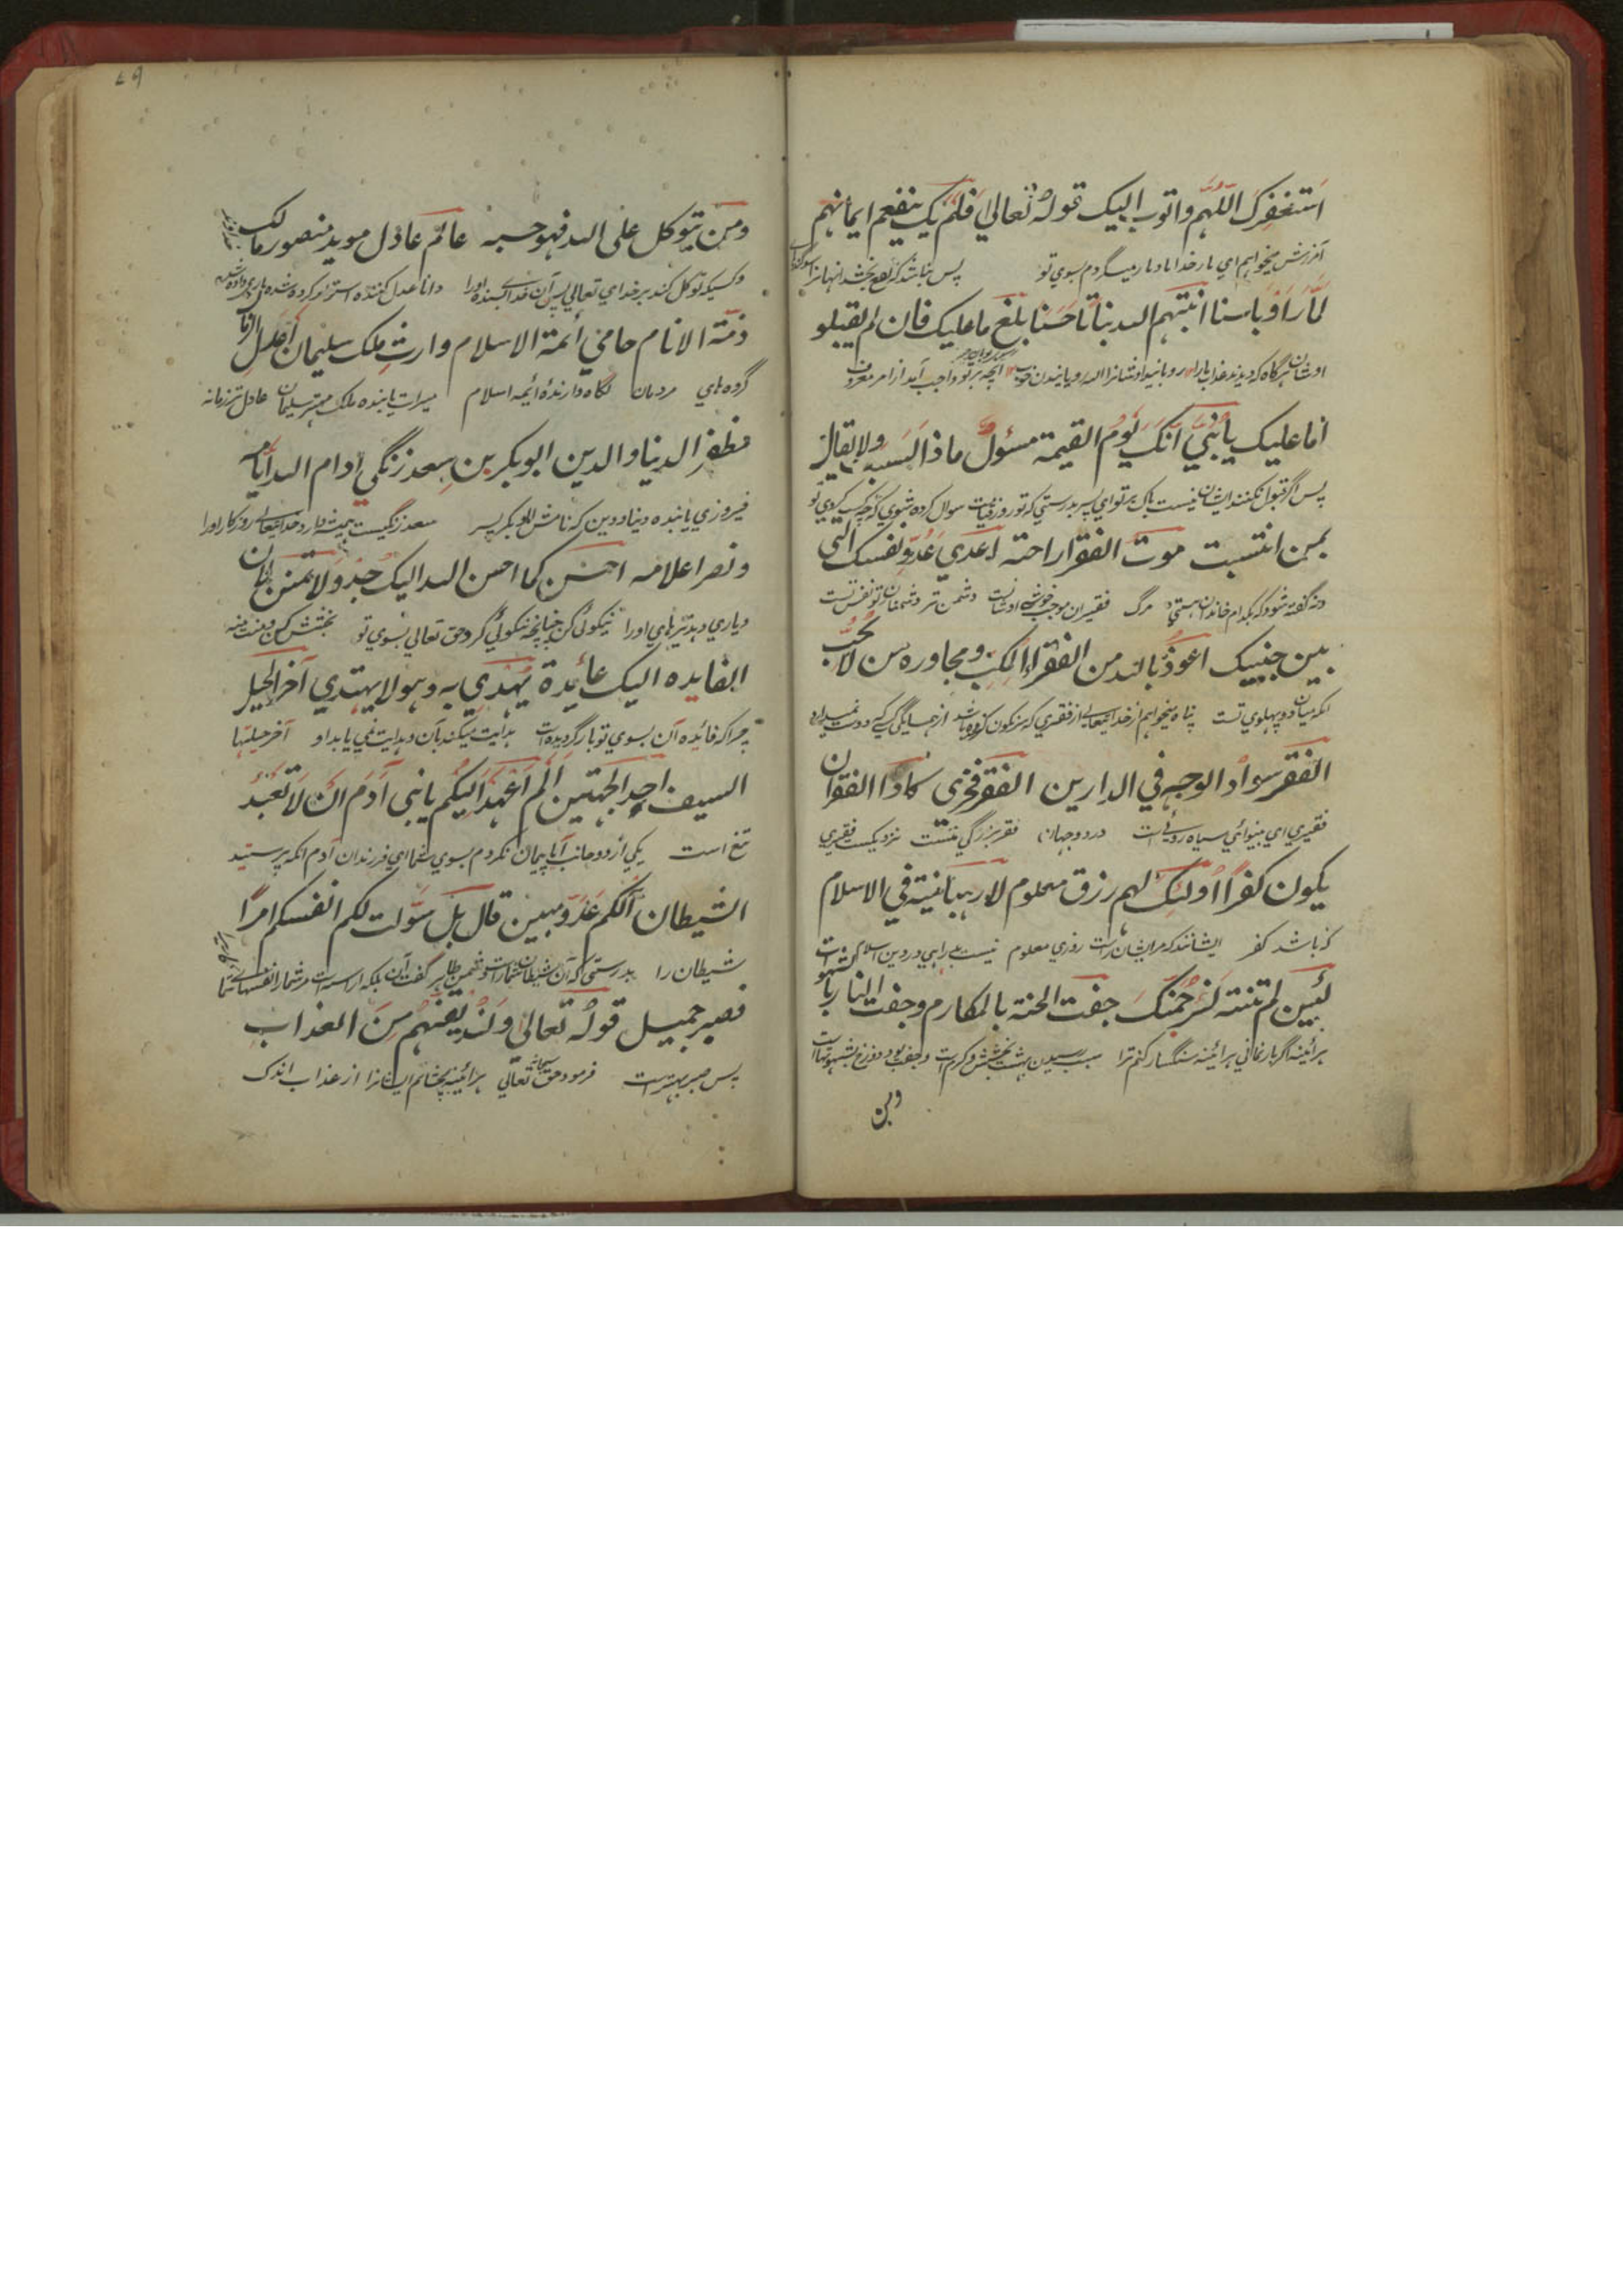 استغفرک اللهم واتوب الیک قوله تعالی فلم یک ینفعهم ایمانهم
آمرزش میخواهم ای بار خدایا و باز میگردم بسوی تو پس نباشد که نفع بخشد انهارا
لما راوا باسنا انبتهم الله نباتا حسنا بلغ ما علیک فان لم یقبلو
اوشان هرگاه که دیدند عذاب مارا رویانید اوشانرا الله رویانیدن خوب انچه بر تو واجب آمد از امر معروف
فما علیک یا بنی انک یوم القیمة مسئول ماذا اکتسبت ولا یقال
پس اگر قبول نکنند ایشان نیست باک بر تو ای پسر بدرستی که تو روز قیامت سوال کرده شوی که چه کسب کردی تو
بمن انتسبت موت الفقرا راحة اعدی عدو نفسک التی
و نه گفته شود که بکدام خاندان هستی مرگ فقیران موجب خوشی اوشانست دشمن تر دشمنان تو نفس تست
بین جنبیک اعوذ بالله من الفقر المکب ومجاوره من لا یحب
انکه میان دو پهلوی تست پناه میخواهم از خدا یتعالی از فقری که سرنگون کرده باشد از همسایگی کسی که دوست نمیدارد
الفقر سواد الوجه فی الدارین الفقر فخری کاد الفقر ان
فقیری ای بینوائی سیاه روئی است در دو جهان فقر بزرگی منست نزدیکست فقیری
یکون کفرا اولئک لهم رزق معلوم لا رهبانیة فی الاسلام
که باشد کفر ایشانند که مر ایشان راست روزی معلوم نیست راهبی در دین اسلام
لئین لم تنته لارجمنک حفت الجنة بالمکارم وحفت النار بالشهوات
هر آئینه اگر باز نمانی هر آئینه سنگسار کنم ترا سبب رسیدن بهشت بخشش و کرم است
ومن
ومن یتوکل علی الله فهو حسبه عالم عادل موید منصور مالک
وکسیکه توکل کند بر خدای تعالی پس آن خدا بسنده اورا دانا عدل کننده استوار کرده شده یاری داده شده
ذمة الانام حامی أئمة الاسلام وارث ملک سلیمان اعدل
گروه های مردمان نگاه دارندۀ ائمه اسلام میراث یابنده ملک مهتر سلیمان عادل تر زمانه
مظفر الدنیا والدین ابوبکر بن سعد زنگی ادام الله ایامه
فیروزی یابنده دنیا و دین که نامش ابوبکر پسر سعد زنگیست همیشه دارد خدا یتعالی روزگار اورا
ونصر اعلامه احسن کما احسن الله الیک جد ولا تمنن فان
ویاری دهد تیرهای اورا نیکوئی کن چنانچه نیکوئی کرد حق تعالی بسوی تو بخشش کن ومنت منه
الفایده الیک عائدة یهدی به وهو لا یهتدی آخر الحیل
چرا که فائده آن بسوی تو باز گردیده است هدایت میکند بآن وهدایت نمی یابد او آخر حیلتها
السیف احد الجهتین الم اعهد الیکم یا بنی آدم ان لا تعبد
تیغ است یکی از دو جانب آیا پیمان نکردم بسوی شما ای فرزندان آدم انکه پرستید
الشیطان انه لکم عدو مبین قال بل سولت لکم انفسکم امرا
شیطان را بدرستی که آن شیطان شمارا دشمن ظاهر گفت آن بلکه آراسته است مر شمارا نفسهای شما
فصبر جمیل قوله تعالی ولنذیقنهم من العذاب
پس صبر بهتر است فرمود حق تعالی هر آئینه بچشانم ایشانرا از عذاب اندک